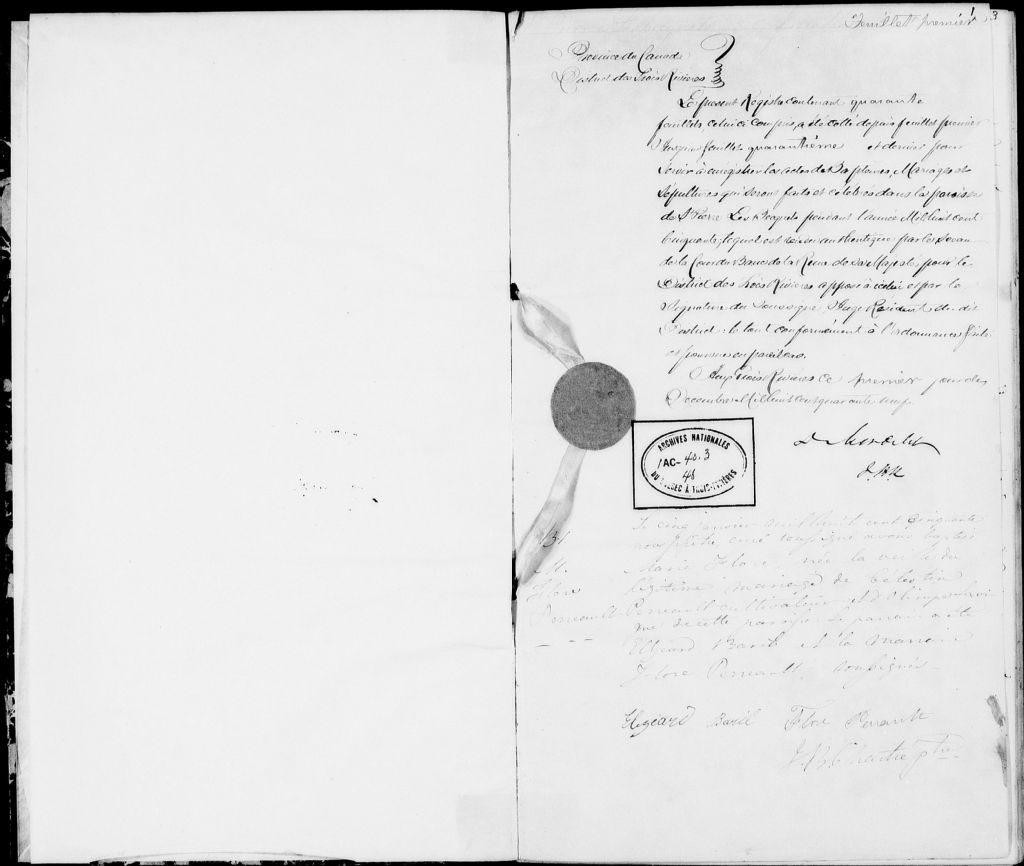 Feuillet premier
1 3
Province du Canada
District des Trois Rivieres
Le present Registre contenant quarante
feuillets, celui ci compris, a été cotté depuis feuillet premier
jusqu'au feuillet quarantième et dernier pour
servir à enregistrer les actes de Baptemes, Mariages et
Sépultures qui seront faits et célébrés dans la paroisse
de St Pierre Les Becquets pendant l'année Mil huit cent
Cinquante, lequel est authentiqué par le Sceau
de la Cour du Banc de la Reine de sa Majesté, pour le
District des Trois Rivières apposé à icelui et par la
Signature du Soussigné, Juge Résident du dit
District; le tout conformément à l'ordonnance faite
et pourvue en pareil cas.
Trois Rivières ce premier jour de
Decembre Mil huit cent quarante neuf.
ARCHIVES NATIONALES
DU QUÉBEC À TROIS-RIVIÈRES
Le cinq janvier mil huit cent cinquante
nous prêtre curé soussigné avons baptisé
M.
Marie Flore, née la veille du
Flore
légitime mariage de Célestin
Perreault
Perreault cultivateur et d'
de cette paroisse. Le parrain a été
Elzéard Baril et la marraine
Flore Perreault soussignés
Elzéard Baril Flore Perault
ptre